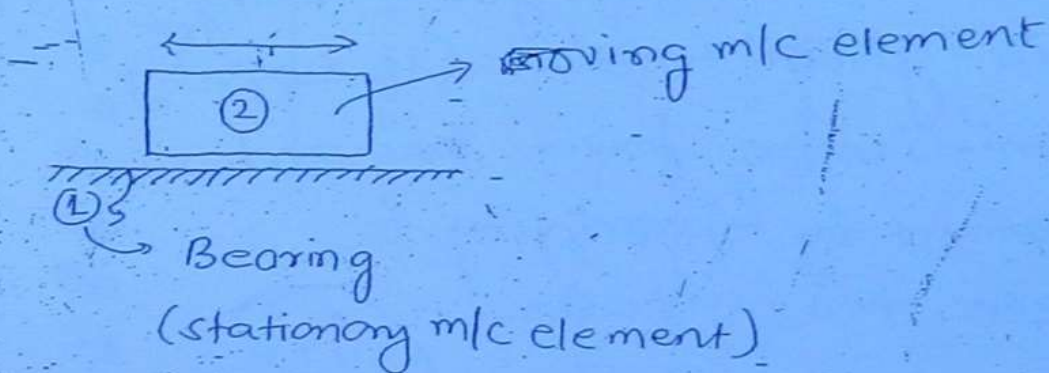 moving m/c element
②
①
Bearing
(stationary m/c element)